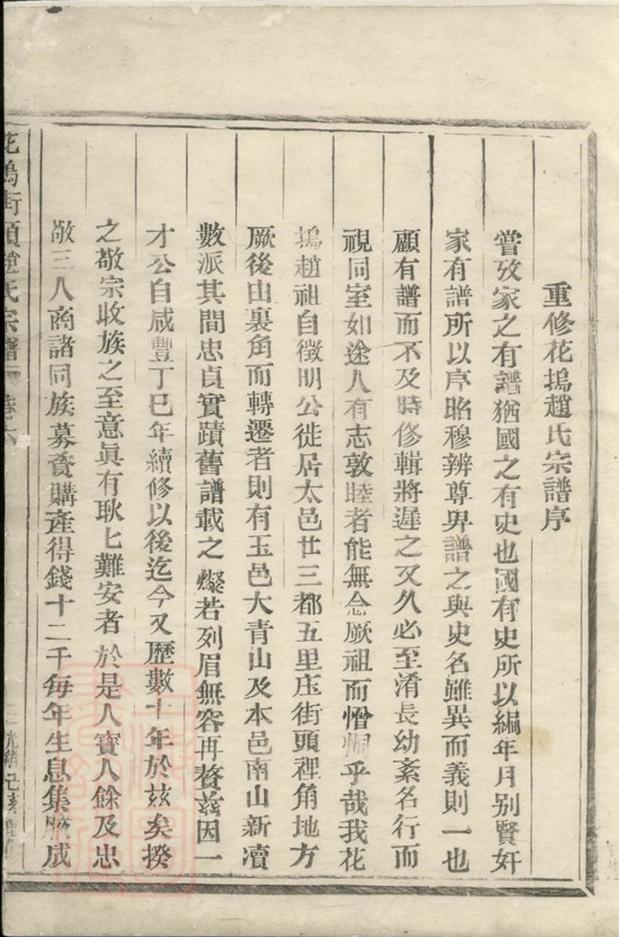 重修花塢趙氏宗譜序
嘗攷家之有譜猶國之有史也國有史所以編年月別賢奸
家有譜所以序昭穆辨尊畀譜之與史名雖異而義則一也
顧有譜而不及時修輯將遲之又久必至淆長幼紊名行而
視同室如途人有志敦睦者能無念厥祖而憎恫乎哉我花
塢趙祖自徵明公徙居太邑廿三都五里庄街頭裡角地方
厥後由裏角而轉遷者則有玉邑大青山及本邑南山新瀆
數派其間忠貞實蹟舊譜載之燦若列眉無容再贅兹因一
才公自咸豐丁巳年續修以後迄今又歷數十年於兹矣揆
之敬宗收族之至意眞有耿七難安者於是人寳人餘及忠
敬三人商諸同族募資購產得錢十二千每年生息集腋成
花塢街頭趙氏宗譜 卷之
光緒己亥重修